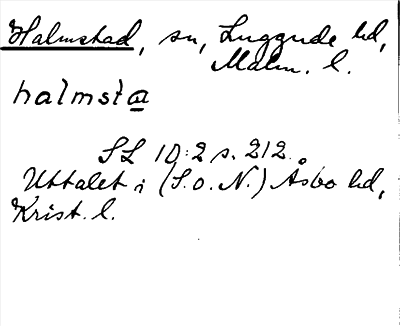 Halmstad, sn, Luggude hd,
Malm. l.
halmsta
SL 10:2 s. 212.
Uttalet i (S. o. N.) Åsbo hd,
Krist. l.